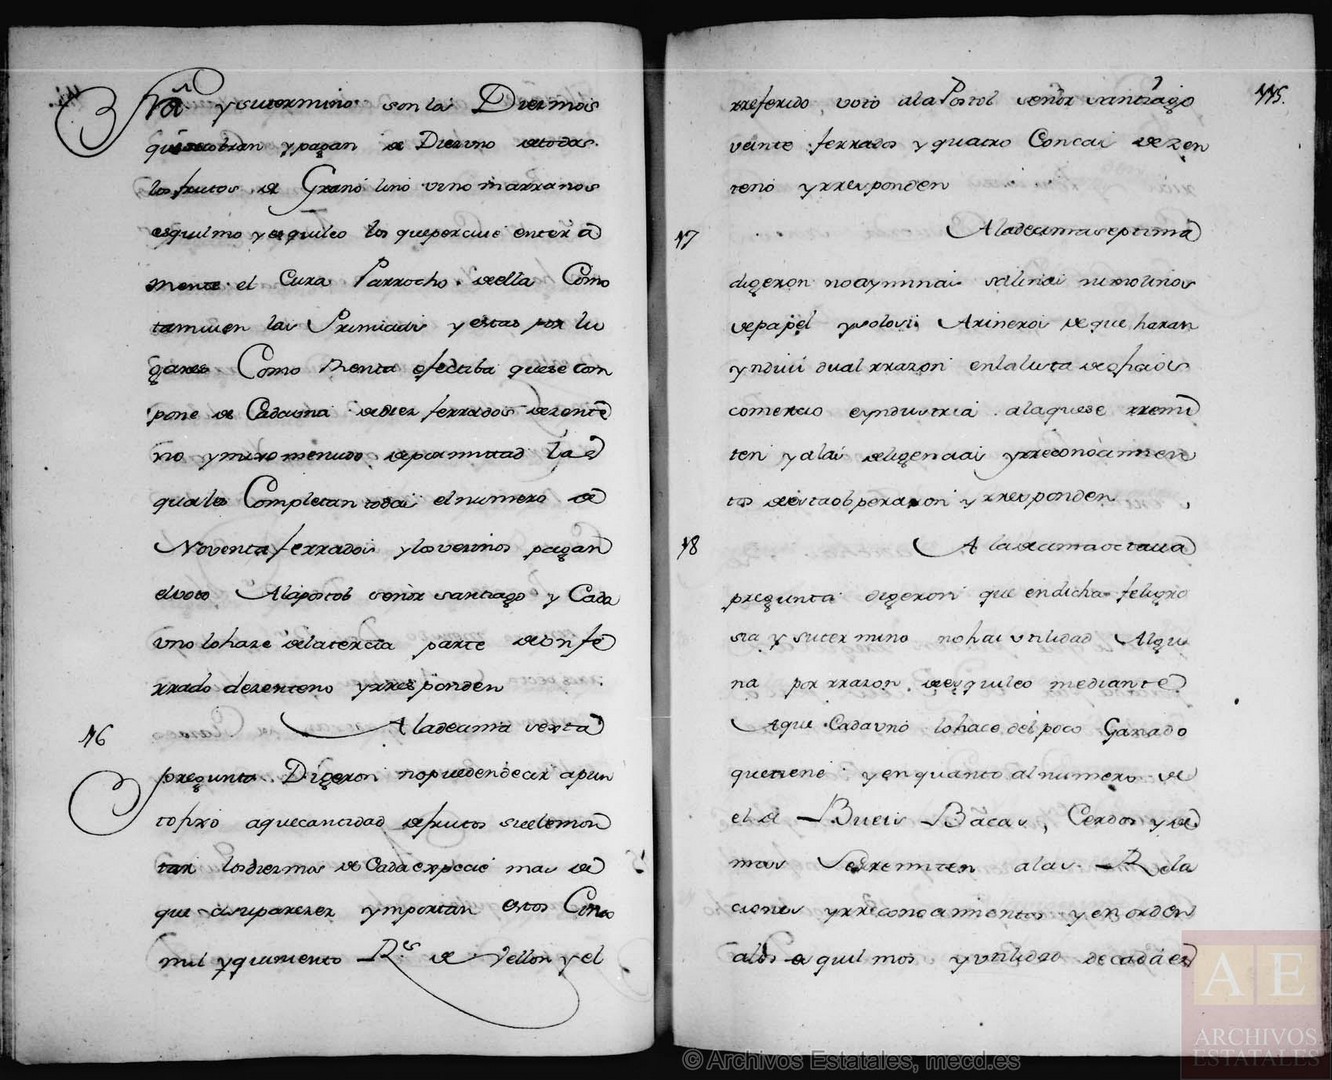 fra y su termino son la Diezmos
que se cobran y pagan de Diez uno de todos
los frutos de Grano lino vino marranos
esquilmo y esquileo los que percive entera
mente el Cura Parrocho de ella Como
tamvien las Primicias y estas por lu
gares Como Renta efectiba que se com
pone de Cada una de diez ferrados de zente
no y mixo menudo de por mittad La
quales Completan todas el numero de
Noventa ferrados y los vezinos pagan
el voto Al apostol señor santiago y Cada
uno lo haze de la tercia parte de un fe
rrado de zenteno y rresponden
16
A la decima sexta
pregunta Digeron no pueden decir a pun
to fixo a que cantidad de frutos suele mon
tar los diezmos de Cada expecie mas de
que a su parezer ymportan estos Cinco
mil y quiniento Rs de Vellon y el
115.
rreferido voto al aPostol señor santiago
veinte ferrados y quatro Concas de zen
teno y rresponden
17
A la decima septima
digeron no ay minas salinas ni molinos
de papel y solo si Arineros de que haran
yndivi dual rrazon en la lista de ofizios
comercio e yndustria a la que se rremi
ten y a las deligencias y rreconocimien
tos de esta obperazion y rresponden
18
A la decima octava
pregunta digeron que en dicha feligre
sia y su termino no hai utilidad Algu
na por rrazon de esquileo mediante
A que Cada uno lo hace del poco Ganado
que tiene y en quanto al numero de
el de Bueis Bacas, Cerdos y de
mas Se rremiten a las Rela
ciones y rreconocimientos y en orden
a los esquilmos y utilidad de cada es
© Archivos Estatales, mecd.es
AE
ARCHIVOS
ESTATALES